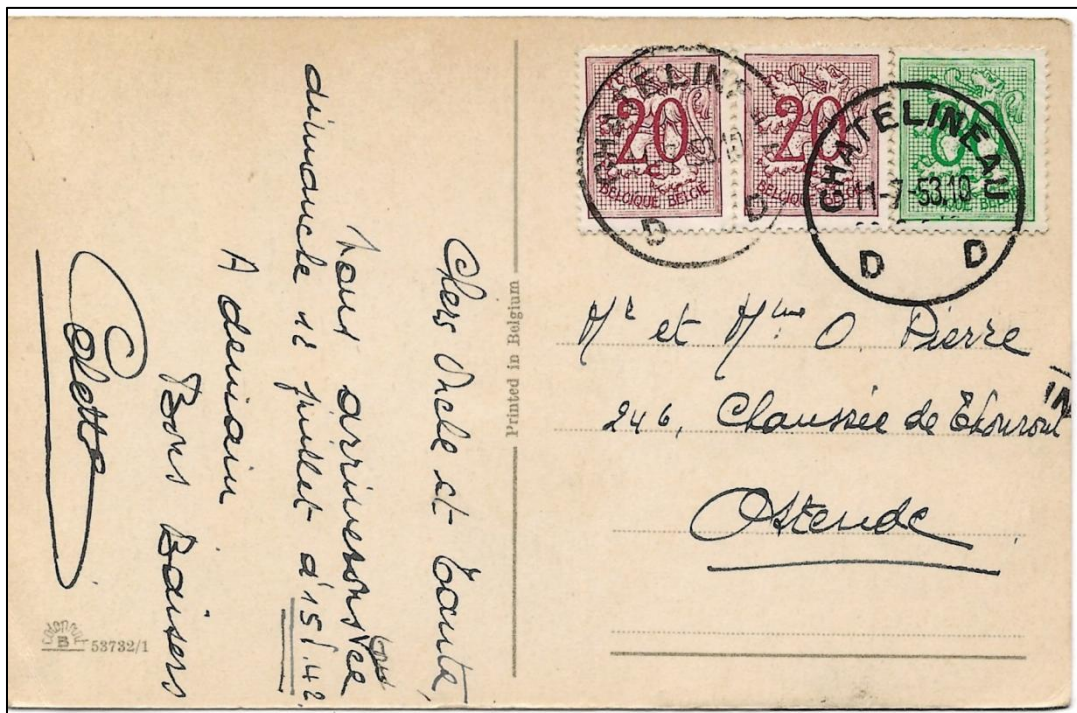 Chers Oncle et Tante,
Nous arriverons
dimanche 12 juillet à 15h42.
A demain
Bons Baisers
Colette
B 53732/1
Printed in Belgium
20
BELGIQUE BELGIE
20
BELGIQUE BELGIE
BELGIQUE BELGIE
CHATELINEAU
D D
CHATELINEAU
11-7-53.10
D D
Mr et Mme O. Pierre
246, Chaussée de Thourout
Ostende